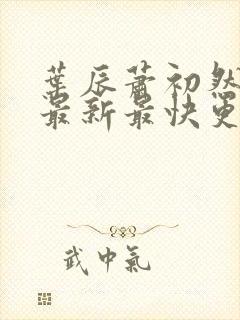 葉辰蕭初然
最新最快更
武中氣